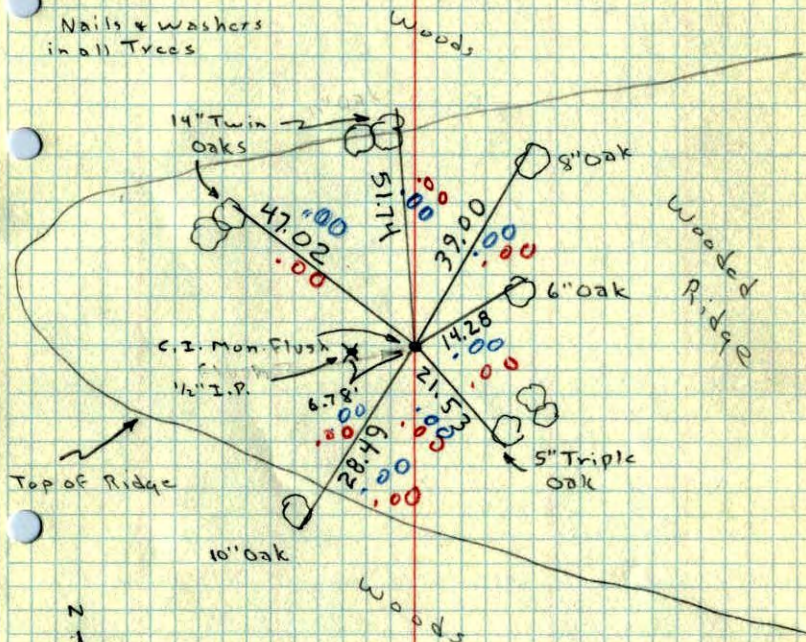 Nails & Washers
in all Trees
Woods
14" Twin
Oaks
8" Oak
51.74
.00
.00
47.02
.00
.00
39.00
.00
.00
Wooded
Ridge
6" Oak
14.28
.00
.00
C.I. Mon. Flush
1/2" I.P.
6.78'
.00
.00
21.53
.00
.00
28.49
.00
.00
5" Triple
Oak
Top of Ridge
10" Oak
Woods
N